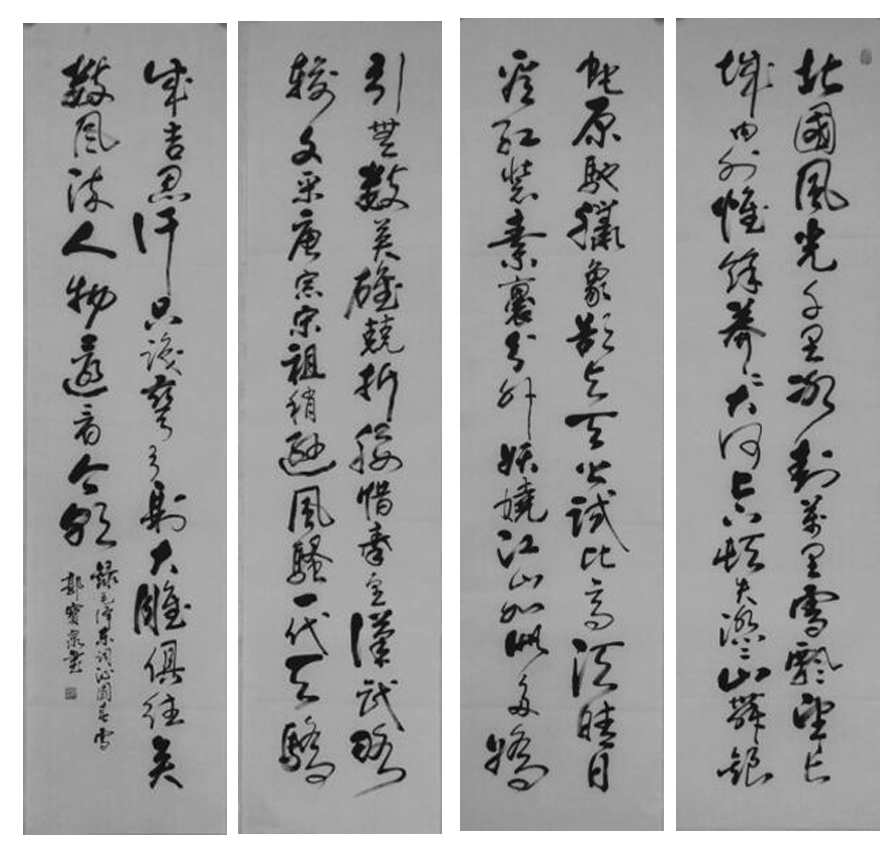 北國風光千里冰封萬里雪飄望長
城内外惟餘莽々大河上下頓失滔々山舞銀
蛇原馳臘象欲與天公試比高須晴日
看紅裝素裹分外妖嬈江山如此多嬌
引無數英雄競折腰惜秦皇漢武略
輸文采唐宗宋祖稍遜風騷一代天驕
成吉思汗只識彎弓射大雕俱往矣
數風流人物還看今朝
錄毛澤東詞沁園春雪
郭寶泉書